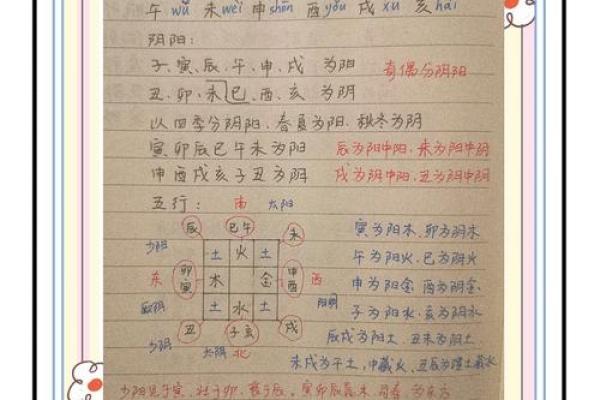 午 wǔ 未 wèi 申 shēn 酉 yǒu 戌 xū 亥 hài
阴阳:
子、寅、辰、午、申、戌 为阳 奇偶分阴阳
丑、卯、未、巳、酉、亥 为阴
以四季分阴阳、春夏为阳、秋冬为阴
寅卯辰巳午未为阳 辰为阳中阳、未为阳中阴
申酉戌亥子丑为阴 戌为阴中阳、丑为阴中阴
五行: 南 太阳
辰 巳午 未 寅为阳木、卯为阴木
少阳 土 火 土 午为阳火、巳为阴火
东 卯寅 木 金 申酉 西 申为阳金 酉为阴金
厥阴 土 水 土 阳明 子为阳水、亥为阴水
丑 子亥 戌 辰戌为阳土、丑未为阴土
少阴 太阴 北
未戌为干土、中藏火、丑辰为湿土藏水
少阳见于寅、壮于卯、衰于辰。寅卯辰 木 司春、为东方